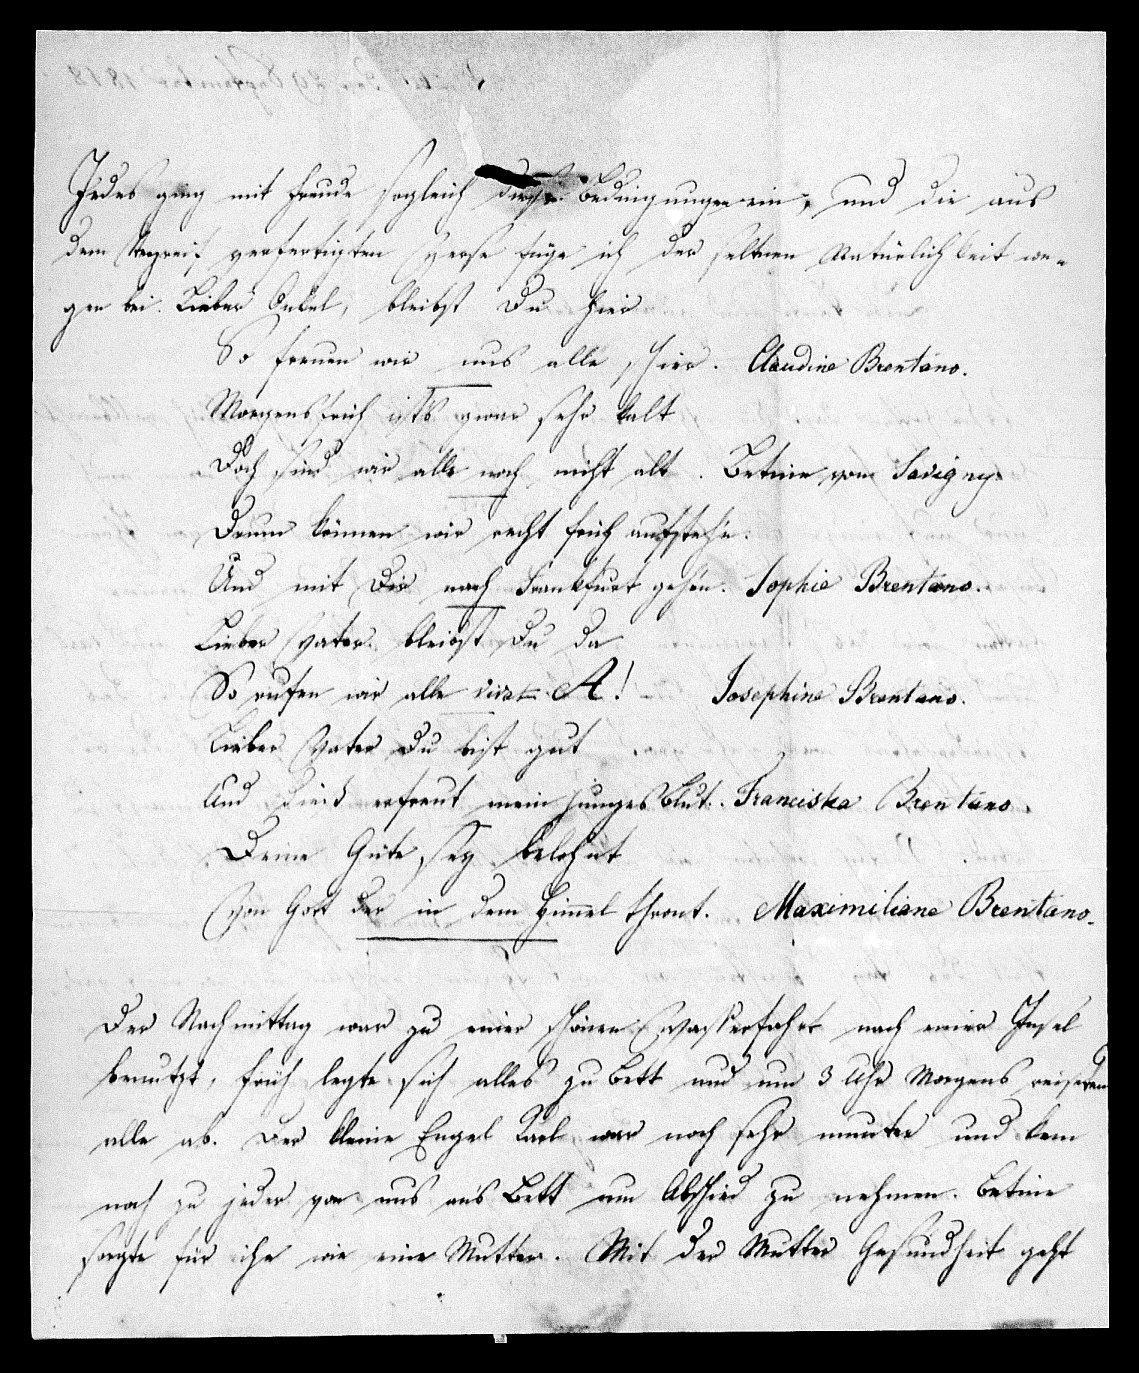 Jedes ging mit Freude sogleich diese Bedingungen ein, und die aus
dem Stegreif verfertigten Verse füge ich der seltnen Natürlichkeit we-
gen bei. Lieber Onkel, bleibst Du hier
So freuen wir uns alle schier. Claudine Brentano.
Morgens früh ists zwar sehr kalt
Doch sind wir alle noch nicht alt. Betine von Savigny.
Drum können wir recht früh aufstehn.
Und mit Dir nach Frankfurt gehen. Sophie Brentano.
Lieber Vater bleibst Du da
So rufen wir alle vivat A! Josephine Brentano.
Lieber Vater Du bist gut
Und Dich erfreut mein junges Blut. Franciska Brentano.
Deine Güte sey belohnt
Von Gott der in dem Himmel thront. Maximiliane Brentano.
Der Nachmittag war zu einer schönen Wasserfahrt nach einer Insel
benutzt, früh legte sich alles zu Bett und um 3 Uhr Morgens reiseten
alle ab. Der kleine Engel Karl war noch sehr munter und kam
noch zu jeder von uns ans Bett um Abschied zu nehmen. Betine
sorgte für ihn wie eine Mutter. Mit der Mutter Gesundheit geht